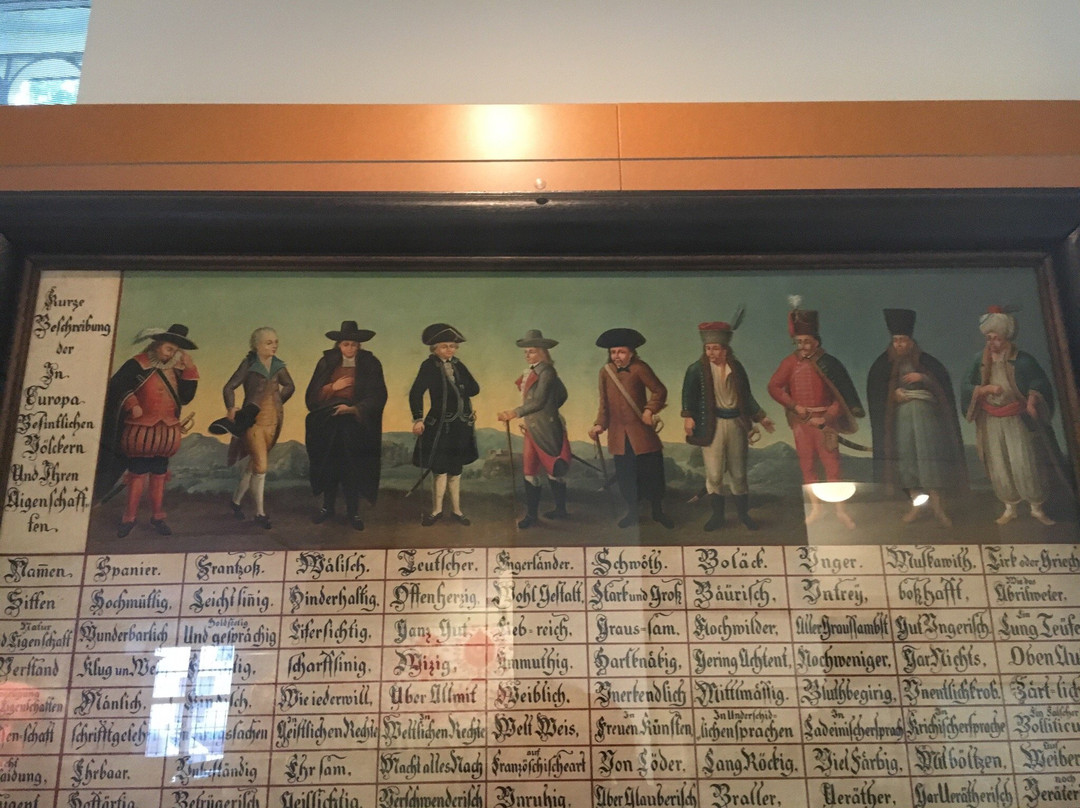 Kurze
Beschreibung
der
In
Europa
Befintlichen
Völckern
Und Ihren
Aigenschaff-
ten.
Namen. Spanier. Frantzoß. Wälisch. Teutscher. Engerländer. Schwöth. Boläck. Unger. Muskawith. Tirk oder Griech
Sitten Hochmüttig, Leicht sinig. Hinderhaltig, Offenherzig, Wohl Gestalt, Starck und Groß Bäurisch, Untrey, boßhafft, Wie das Abrilweter.
Natur
Eigenschaft Wunderbarlich Und gesprächig Eifersichtig, Ganz Gut, Lieb-reich, Graus-sam, Nochwilder, Aller Graussambst Gut Ungerisch, Ein Lung Teüfe
Verstand Klug un. scharffsinig. Wizig, Ammuthig. Hartknäbig, Gering Achtent, Nochweniger, Gar Nichts, Oben Au
Eigenschaften Mänlich. Kindisch. Wie iederwill, Uber Allmit Weiblich. Unerkendlich Mittlmässig, Bluthbegirig, Unentlichkrob. Zärt-lich
schrifftgeleh Geistlichen Rechte In Weltlichen Rechte Welt Weis, In Freuen Künsten, In Underschid-
lichen sprachen In Ladeinischersprach In Krichischersprache Ein Falscher Bolliticu
Ehrbaar. Unbeständig Ehrsam. Macht alles Nach auf Französchischeart Von Löder. Lang Röckig. Viel Färbig. Mit böltzen. Auf Weiber
Hoffärtig. Betrügerisch Geillichtig. Verschwenderisch Unruhig, Uber Glauberisch Braller, Veräther, Gar Verätherisch noch Veräter